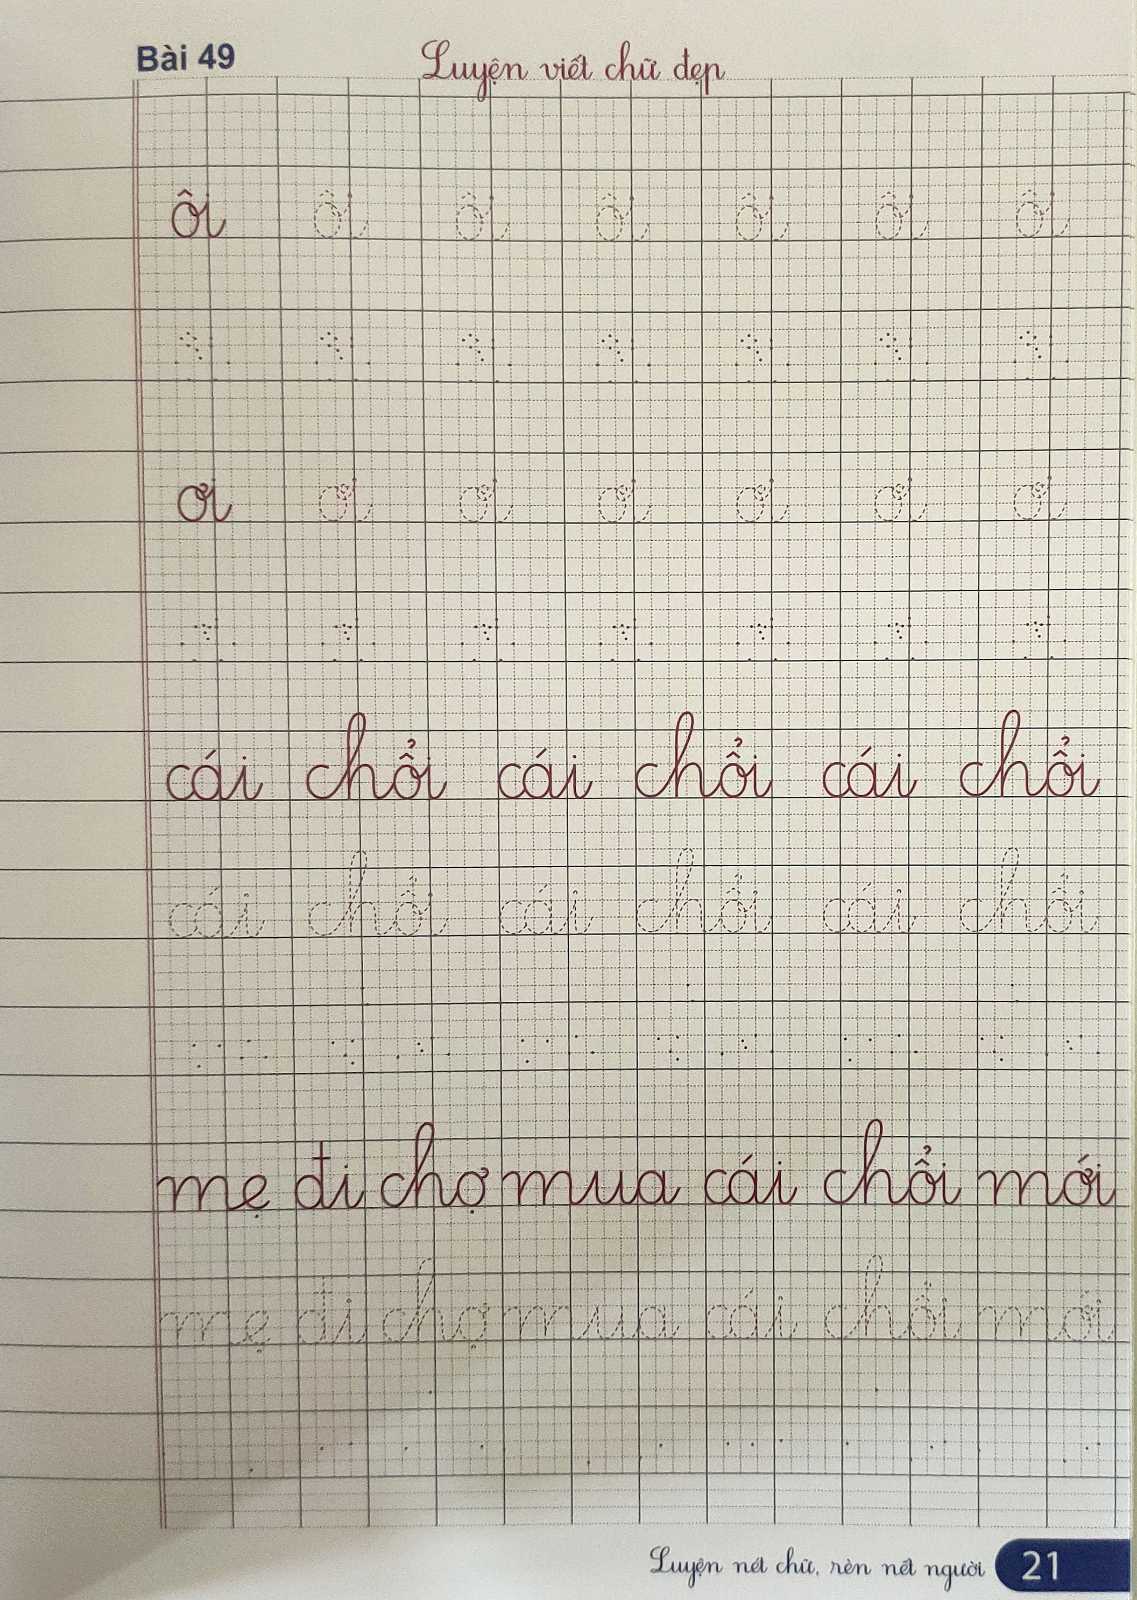 Bài 49 Luyện viết chữ đẹp
ôi ôi ôi ôi ôi ôi ôi
ơi ơi ơi ơi ơi ơi ơi
cái chổi cái chổi cái chổi
cái chổi cái chổi cái chổi
mẹ đi chợ mua cái chổi mới
mẹ đi chợ mua cái chổi mới
Luyện nét chữ, rèn nết người 21